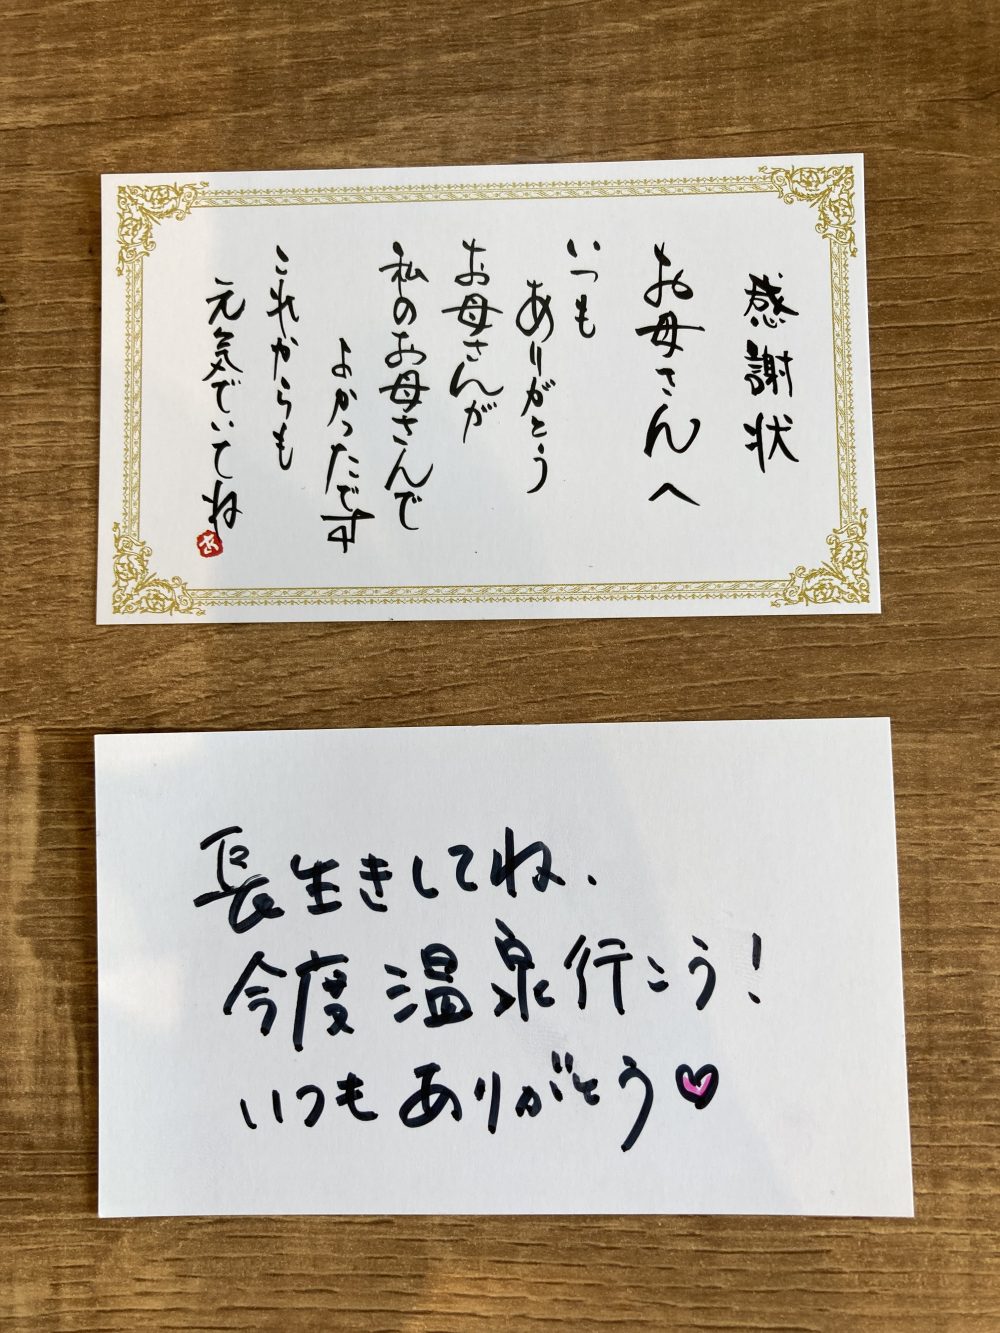 感謝状
お母さんへ
いつも
ありがとう
お母さんが
私のお母さんで
よかったです
これからも
元気でいてね
長生きしてね、
今度温泉行こう!
いつもありがとう♥